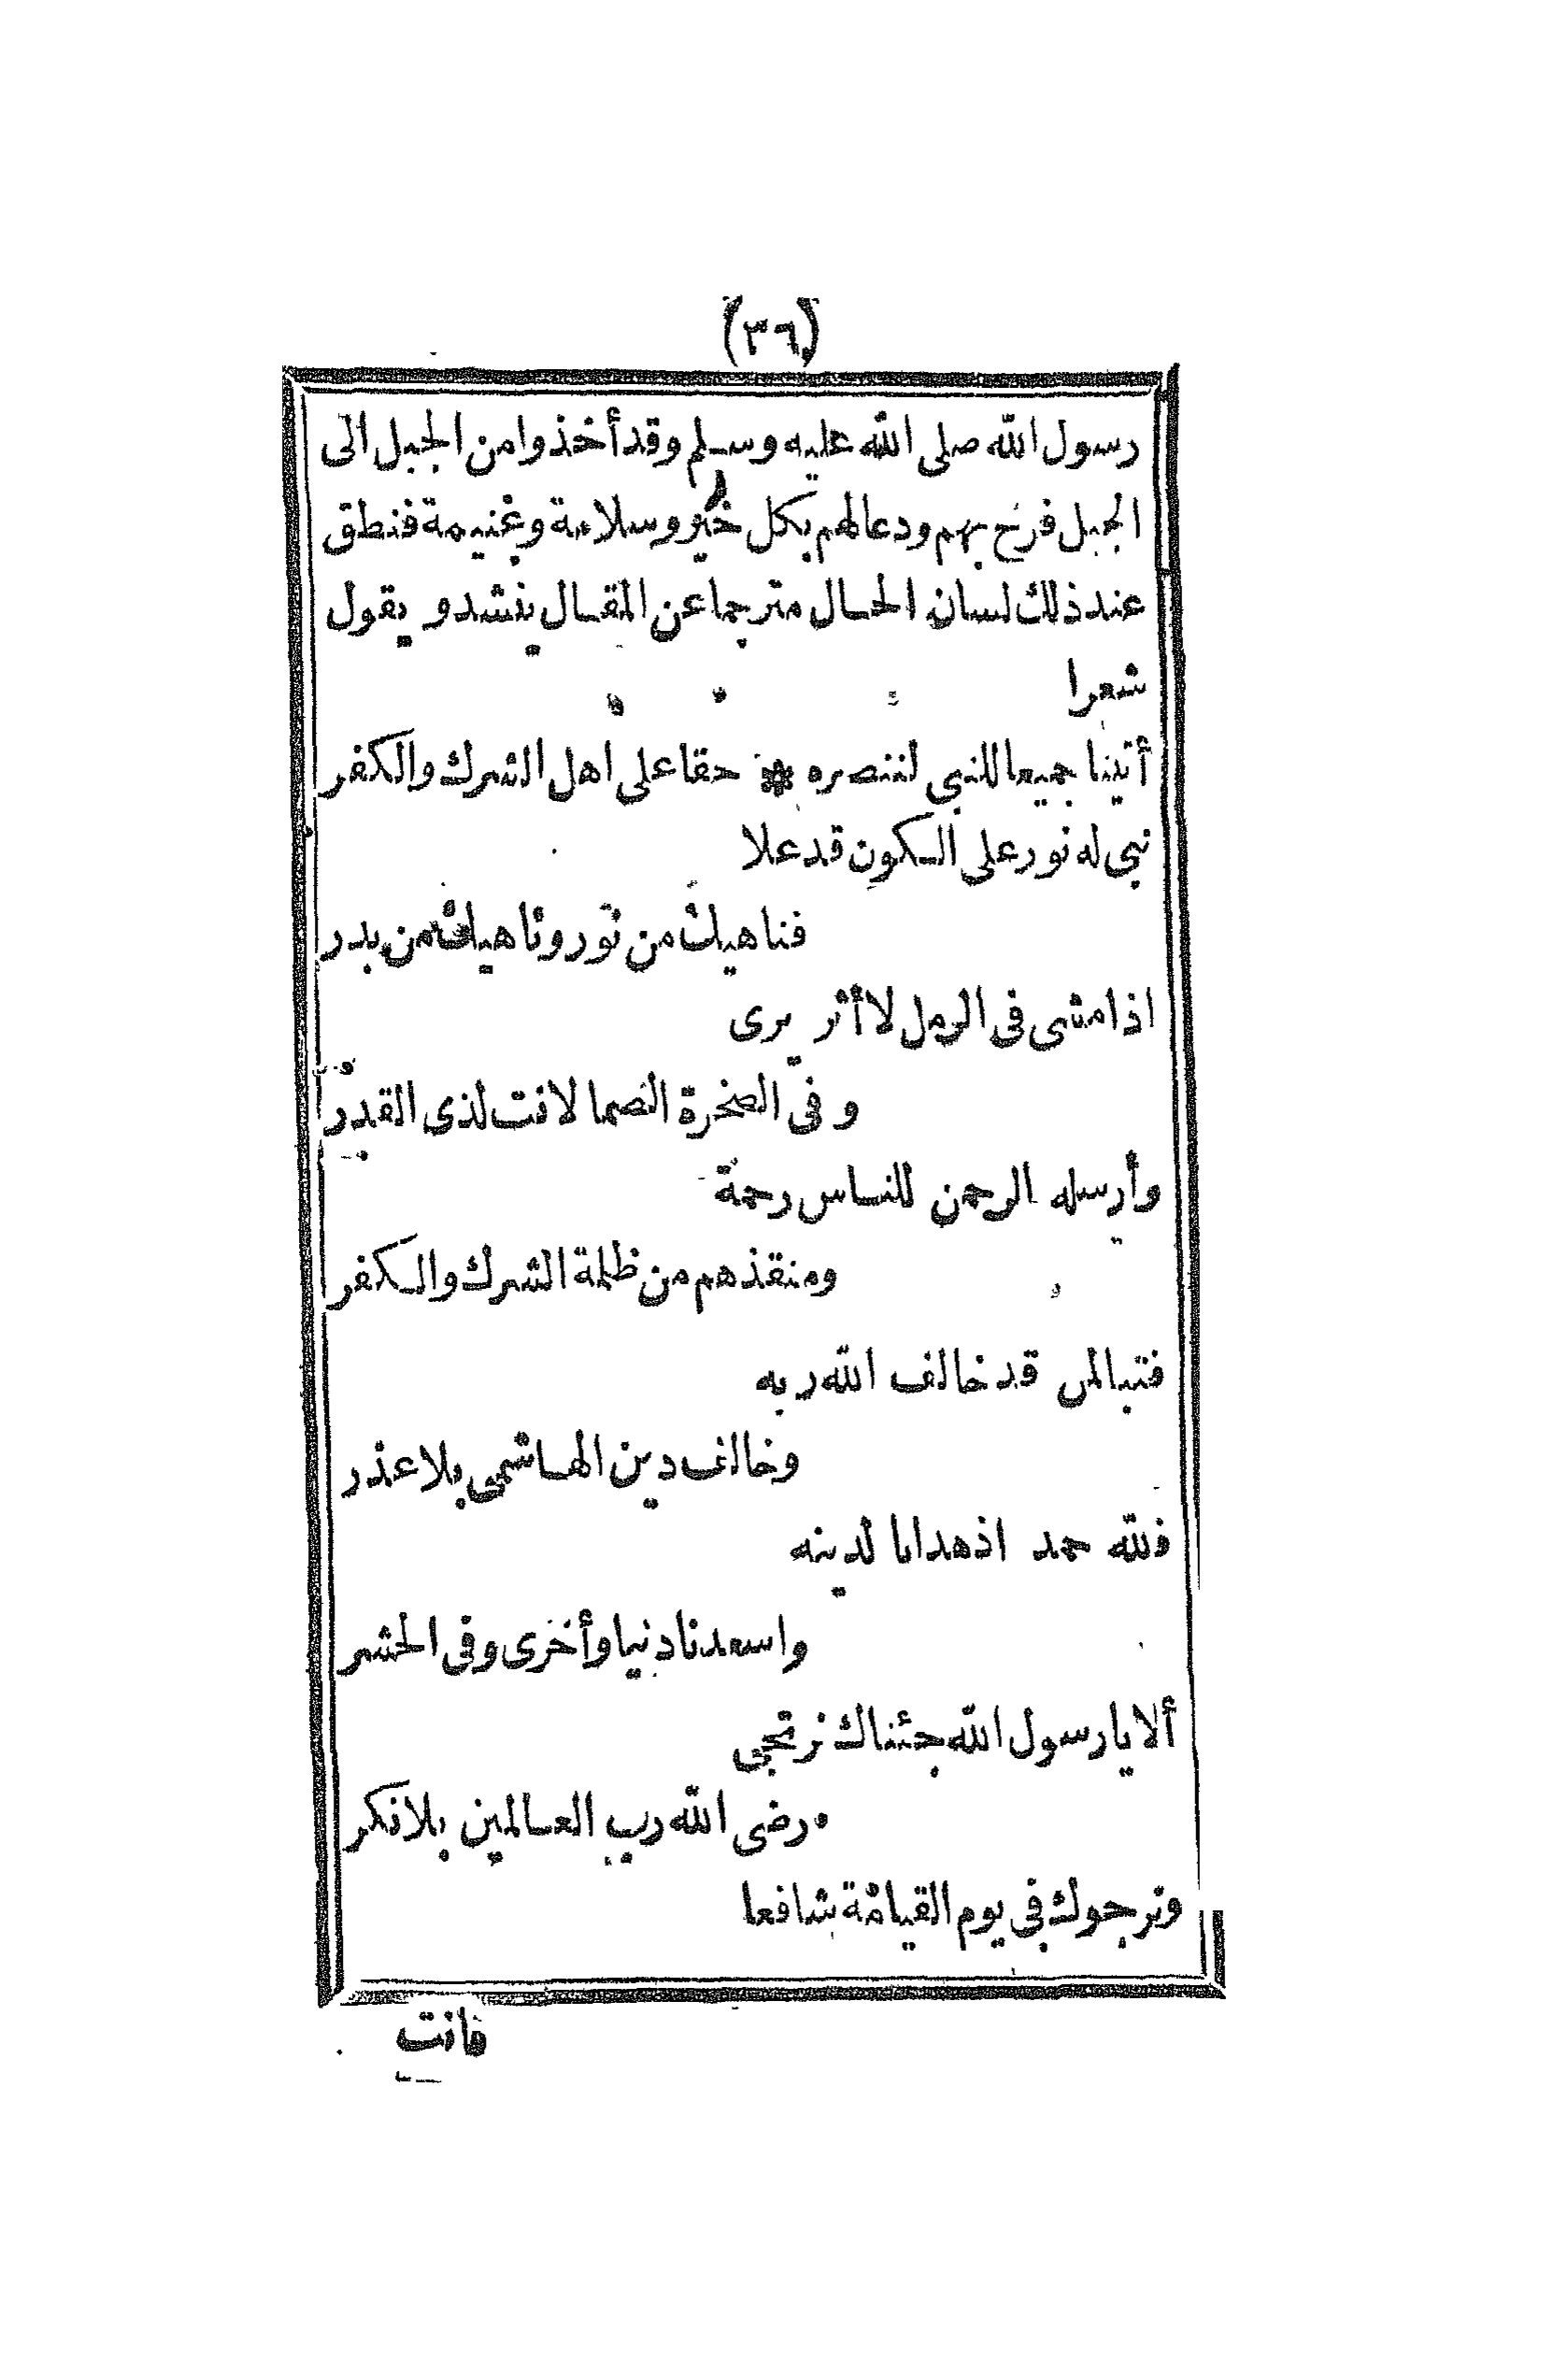 (٣٦)
رسول الله صلى الله عليه وسلم وقد أخذوا من الجبل الى
الجبل فرح بهم ودعا لهم بكل خير وسلامة وغنيمة فنطق
عند ذلك لسان الحال مترجما عن المقال ينشد و يقول
شعرا
أتينا جميعا للنبي لننصره * حقا على اهل الشرك والكفر
نبي له نور على الكون قد علا
فناهيك من نور وناهيك من بدر
اذا مشى فى الرمل لا أثر يرى
و فى الصخرة الصما لانت لذى القدر
وأرسله الرحمن للناس رحمة
ومنقذهم من ظلمة الشرك والكفر
فتبا لمن قد خالف الله ربه
وخالف دين الهاشمى بلا عذر
فلله حمد اذ هدانا لدينه
واسعدنا دنيا وأخرى وفى الحشر
ألا يا رسول الله جئناك نرتجى
رضى الله رب العالمين بلا نكر
ونرجوك فى يوم القيامة شافعا
فانت